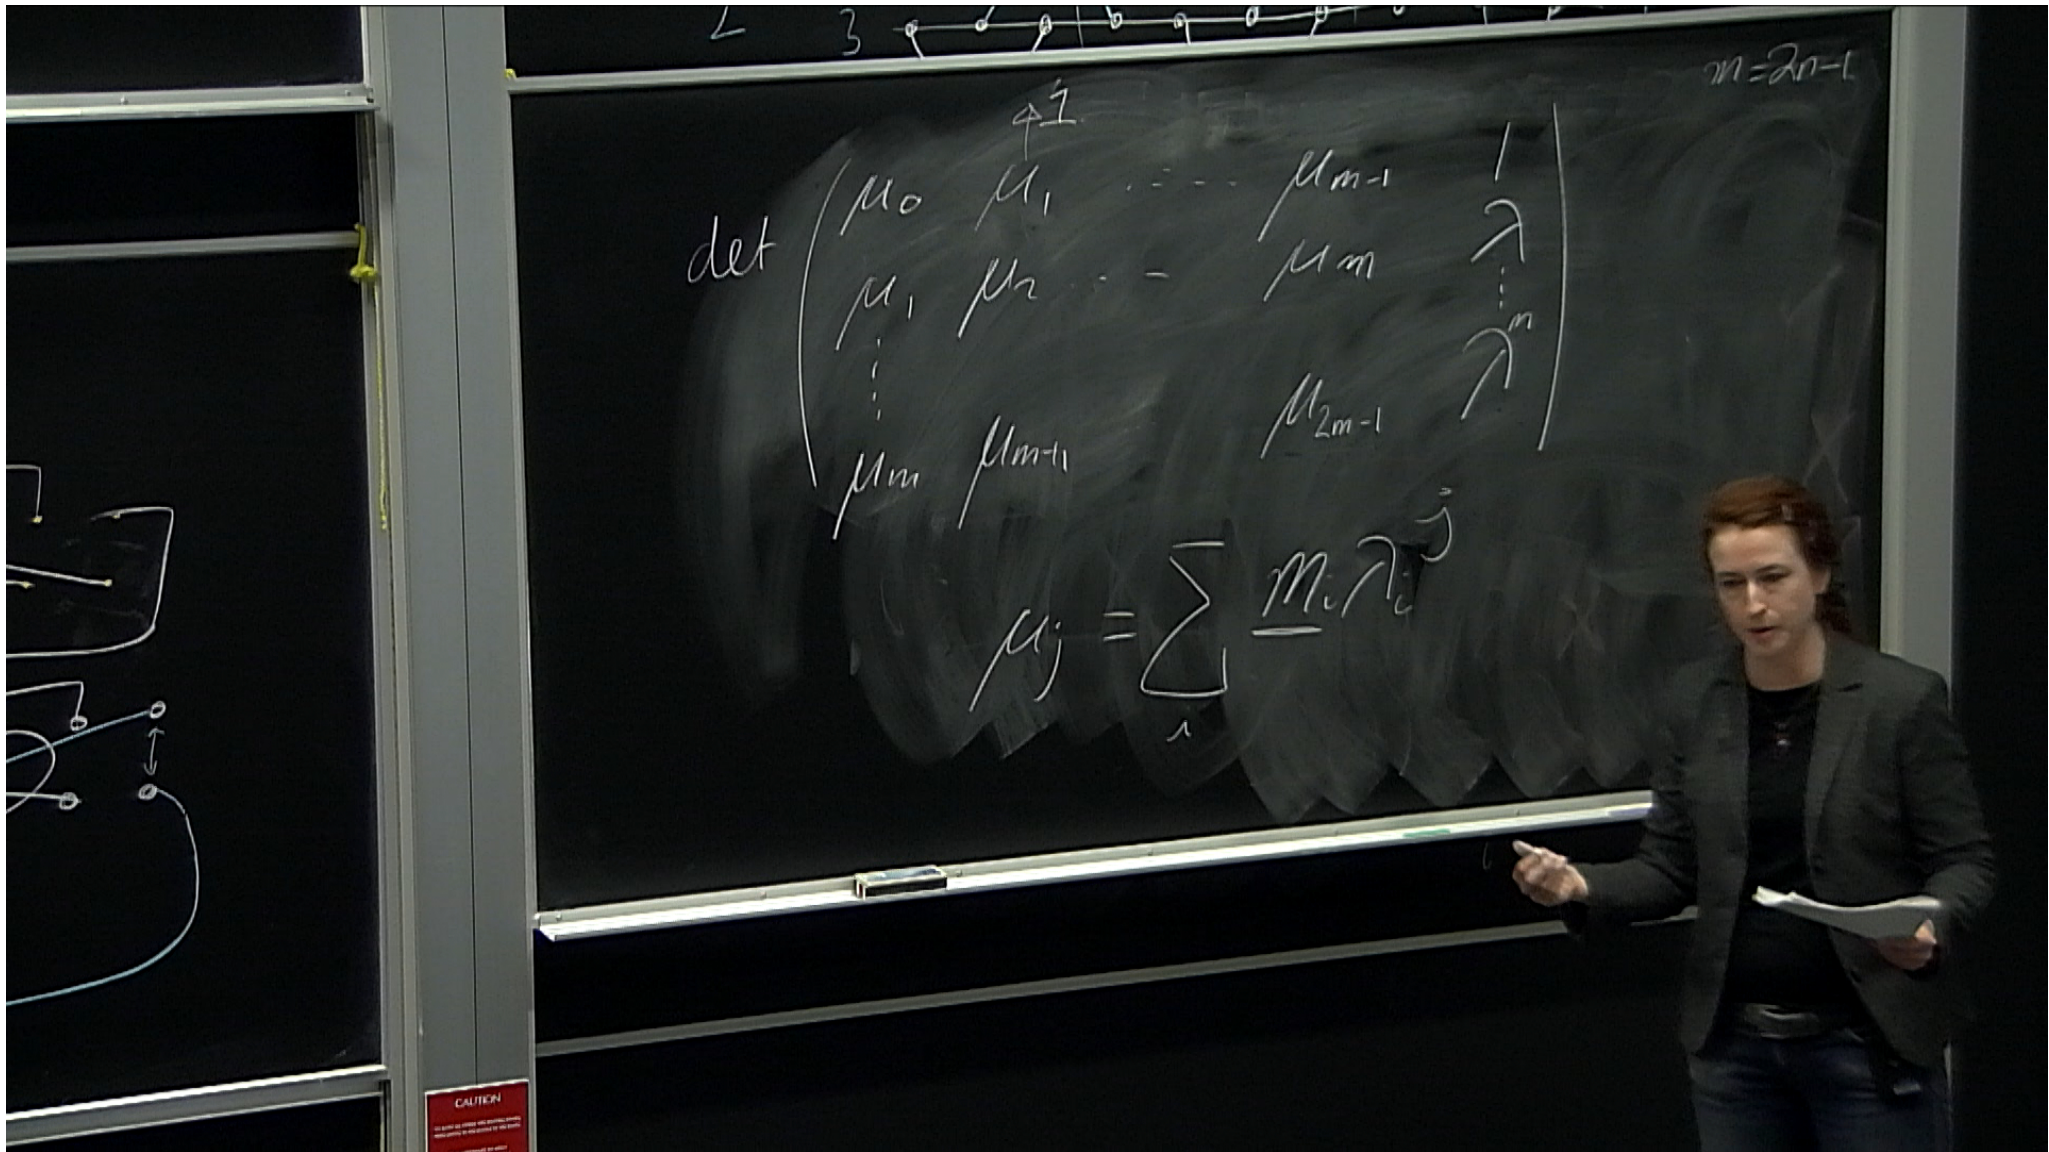 2 3
m=2n-1
1
det ( μ₀ μ₁ ..... μ_{m-1} 1
μ₁ μ₂ ... - μ_m λ
⋮ ⋮
μ_m μ_{m+1} μ_{2m-1} λ^m )
μ_j = Σ_i m_i λ_i^j
CAUTION